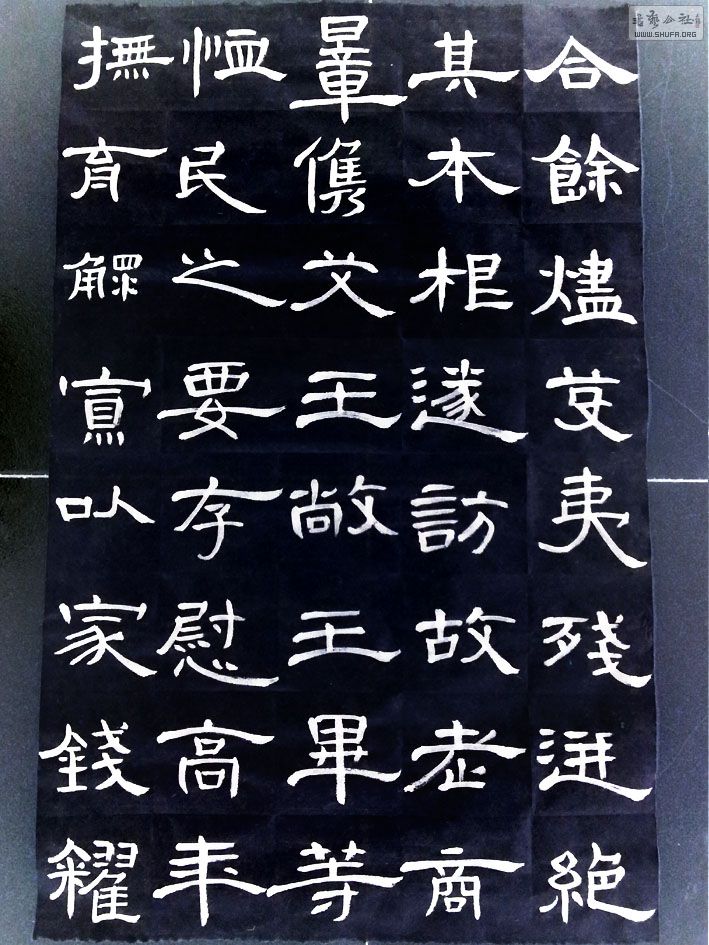 合餘燼芟夷殘迸絕
其本根遂訪故老商
量儁艾王敞王畢等
恤民之要存慰高年
撫育鰥寡以家錢糴
書藝公社
WWW.SHUFA.ORG